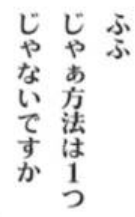 ふふ
じゃぁ方法は1つ
じゃないですか